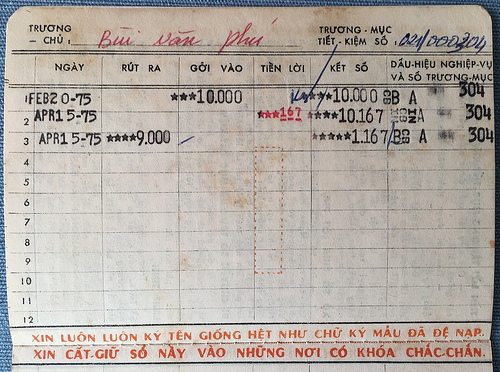 TRƯƠNG – CHỦ : Bùi Văn Phú TRƯƠNG - MỤC TIẾT - KIỆM SỐ : 021/000304
NGÀY RÚT RA GỞI VÀO TIỀN LỜI KẾT SỐ DẤU-HIỆU NGHIỆP-VỤ VÀ SỐ TRƯƠNG-MỤC
1 FEB20-75 ***10.000 ****10.000 B A 304
2 APR15-75 ***167 ****10.167 A 304
3 APR15-75 ****9.000 *****1.167 B A 304
4
5
6
7
8
9
10
11
12
XIN LUÔN LUÔN KÝ TÊN GIỐNG HỆT NHƯ CHỮ KÝ MẪU ĐÃ ĐỆ NẠP.
XIN CẤT-GIỮ SỔ NÀY VÀO NHỮNG NƠI CÓ KHÓA CHẮC-CHẮN.